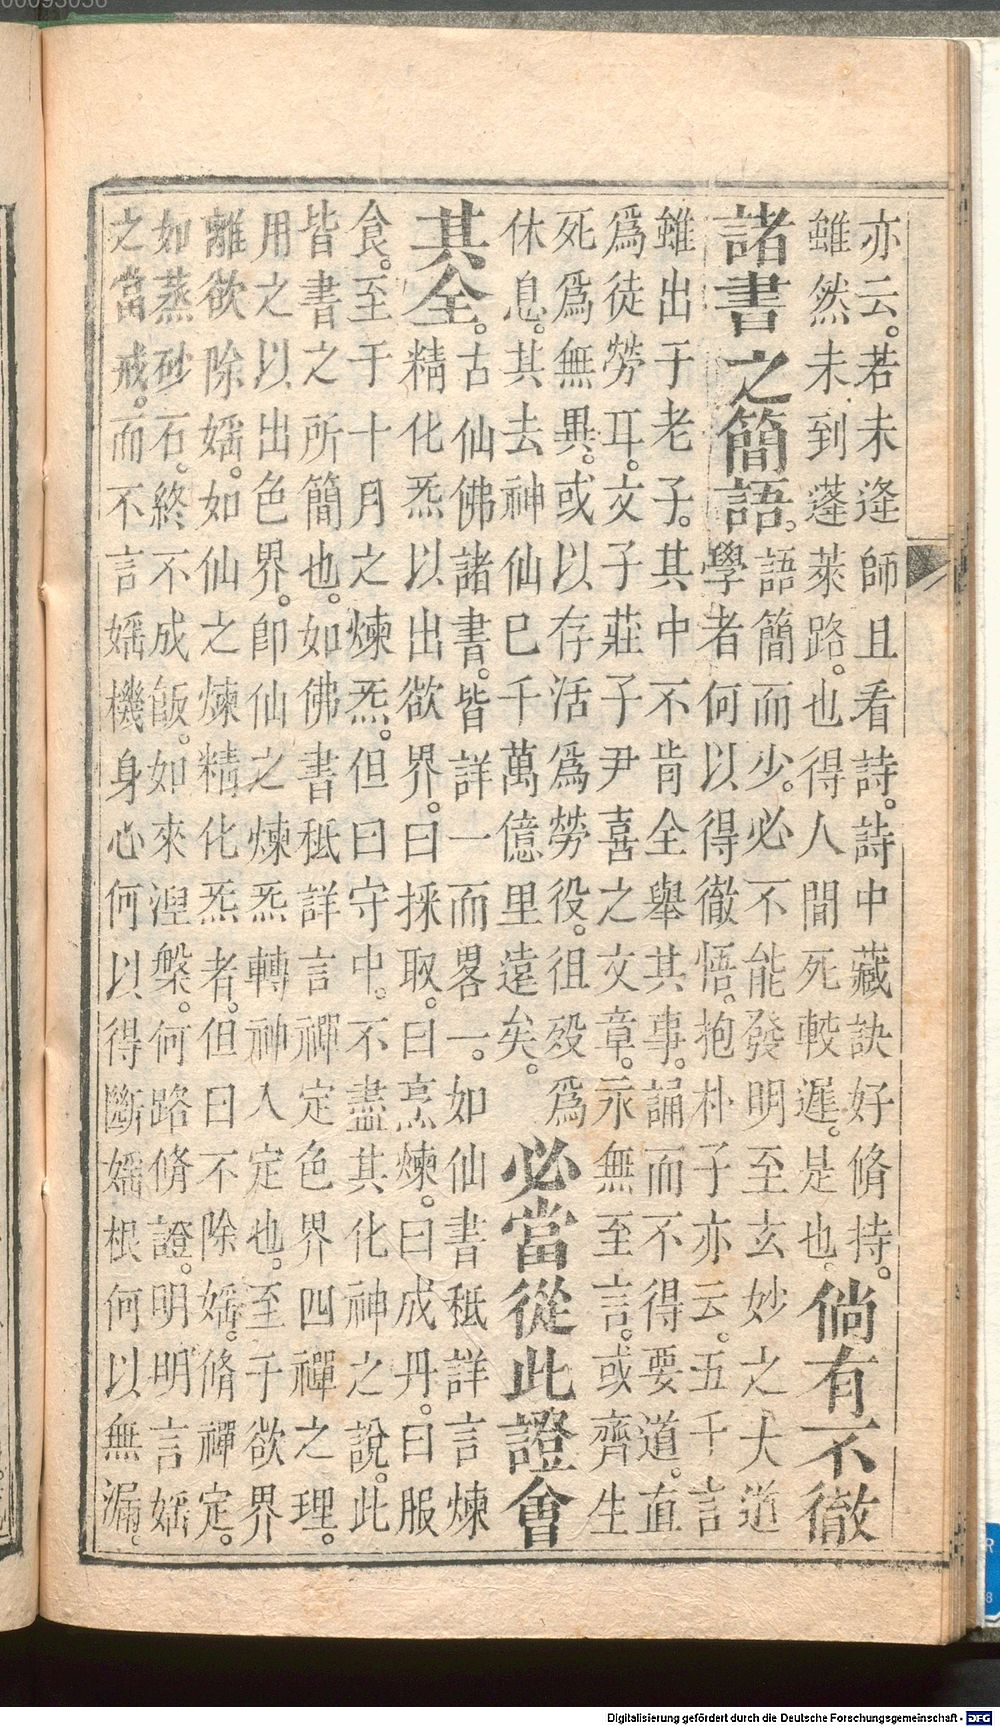 亦云。若未逢師且看詩。詩中藏訣好脩持。
雖然未到蓬萊路。也得人間死較遲。是也。
倘有不徹
諸書之簡語。
語簡而少。必不能發明至玄妙之大道
學者何以得徹悟。抱朴子亦云。五千言
雖出于老子。其中不肯全舉其事。誦而不得要道。直
爲徒勞耳。文子莊子尹喜之文章。永無至言。或齊生
死爲無異。或以存活爲勞役。徂歿爲
休息。其去神仙已千萬億里遠矣。
必當從此證會
其全。
古仙佛諸書。皆詳一而畧一。如仙書秪詳言煉
精化炁以出欲界。曰採取。曰烹煉。曰成丹。曰服
食。至于十月之煉炁。但曰守中。不盡其化神之說。此
皆書之所簡也。如佛書秪詳言禪定色界四禪之理。
用之以出色界。卽仙之煉炁轉神入定也。至于欲界
離欲除婬。如仙之煉精化炁者。但曰不除婬。脩禪定。
如蒸砂石。終不成飯。如來湼槃。何路脩證。明明言婬
之當戒。而不言婬機身心何以得斷婬根何以無漏。
Digitalisierung gefördert durch die Deutsche Forschungsgemeinschaft - DFG